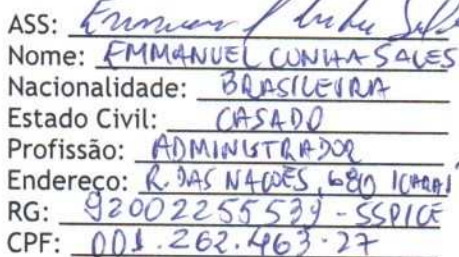 ASS:
Nome: EMMANUEL CUNHA SALES
Nacionalidade: BRASILEIRA
Estado Civil: CASADO
Profissão: ADMINISTRADOR
Endereço: R. DAS NAÇÕES, 680 ICARAÍ
RG: 92002255539 - SSP/CE
CPF: 001.262.463-27